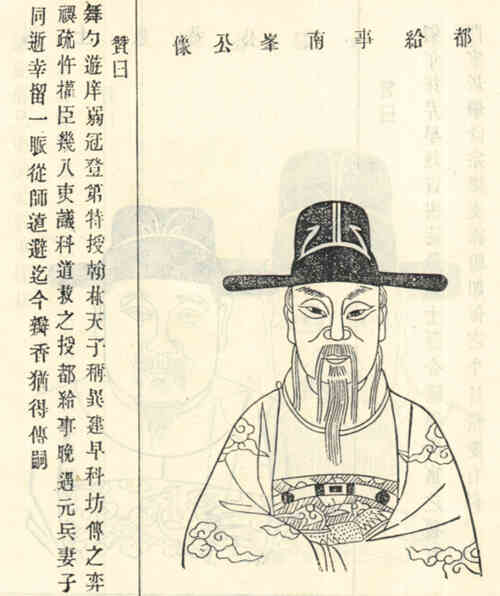 都給事南峯公像
贊曰
舞勺遊庠弱冠登第特授翰林天子稱異建早科坊傳之弈
禩疏忤權臣幾入吏議科道救之授都給事晚遇元兵妻子
同逝幸留一脈從師遠避迄今瓣香猶得傳嗣